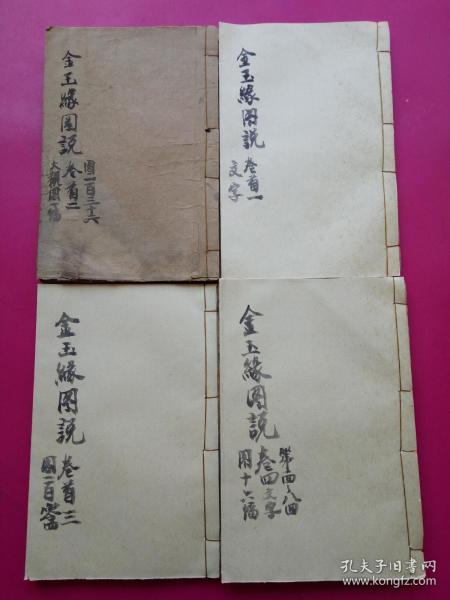 金玉緣图説
卷首二
圖一百三十六
大觀園一幅
金玉緣图説
卷首一
文字
金玉緣图説
卷首三
圖一百
金玉緣图説
卷四文字
圖十六幅
孔夫子旧书网
www.kongfz.com